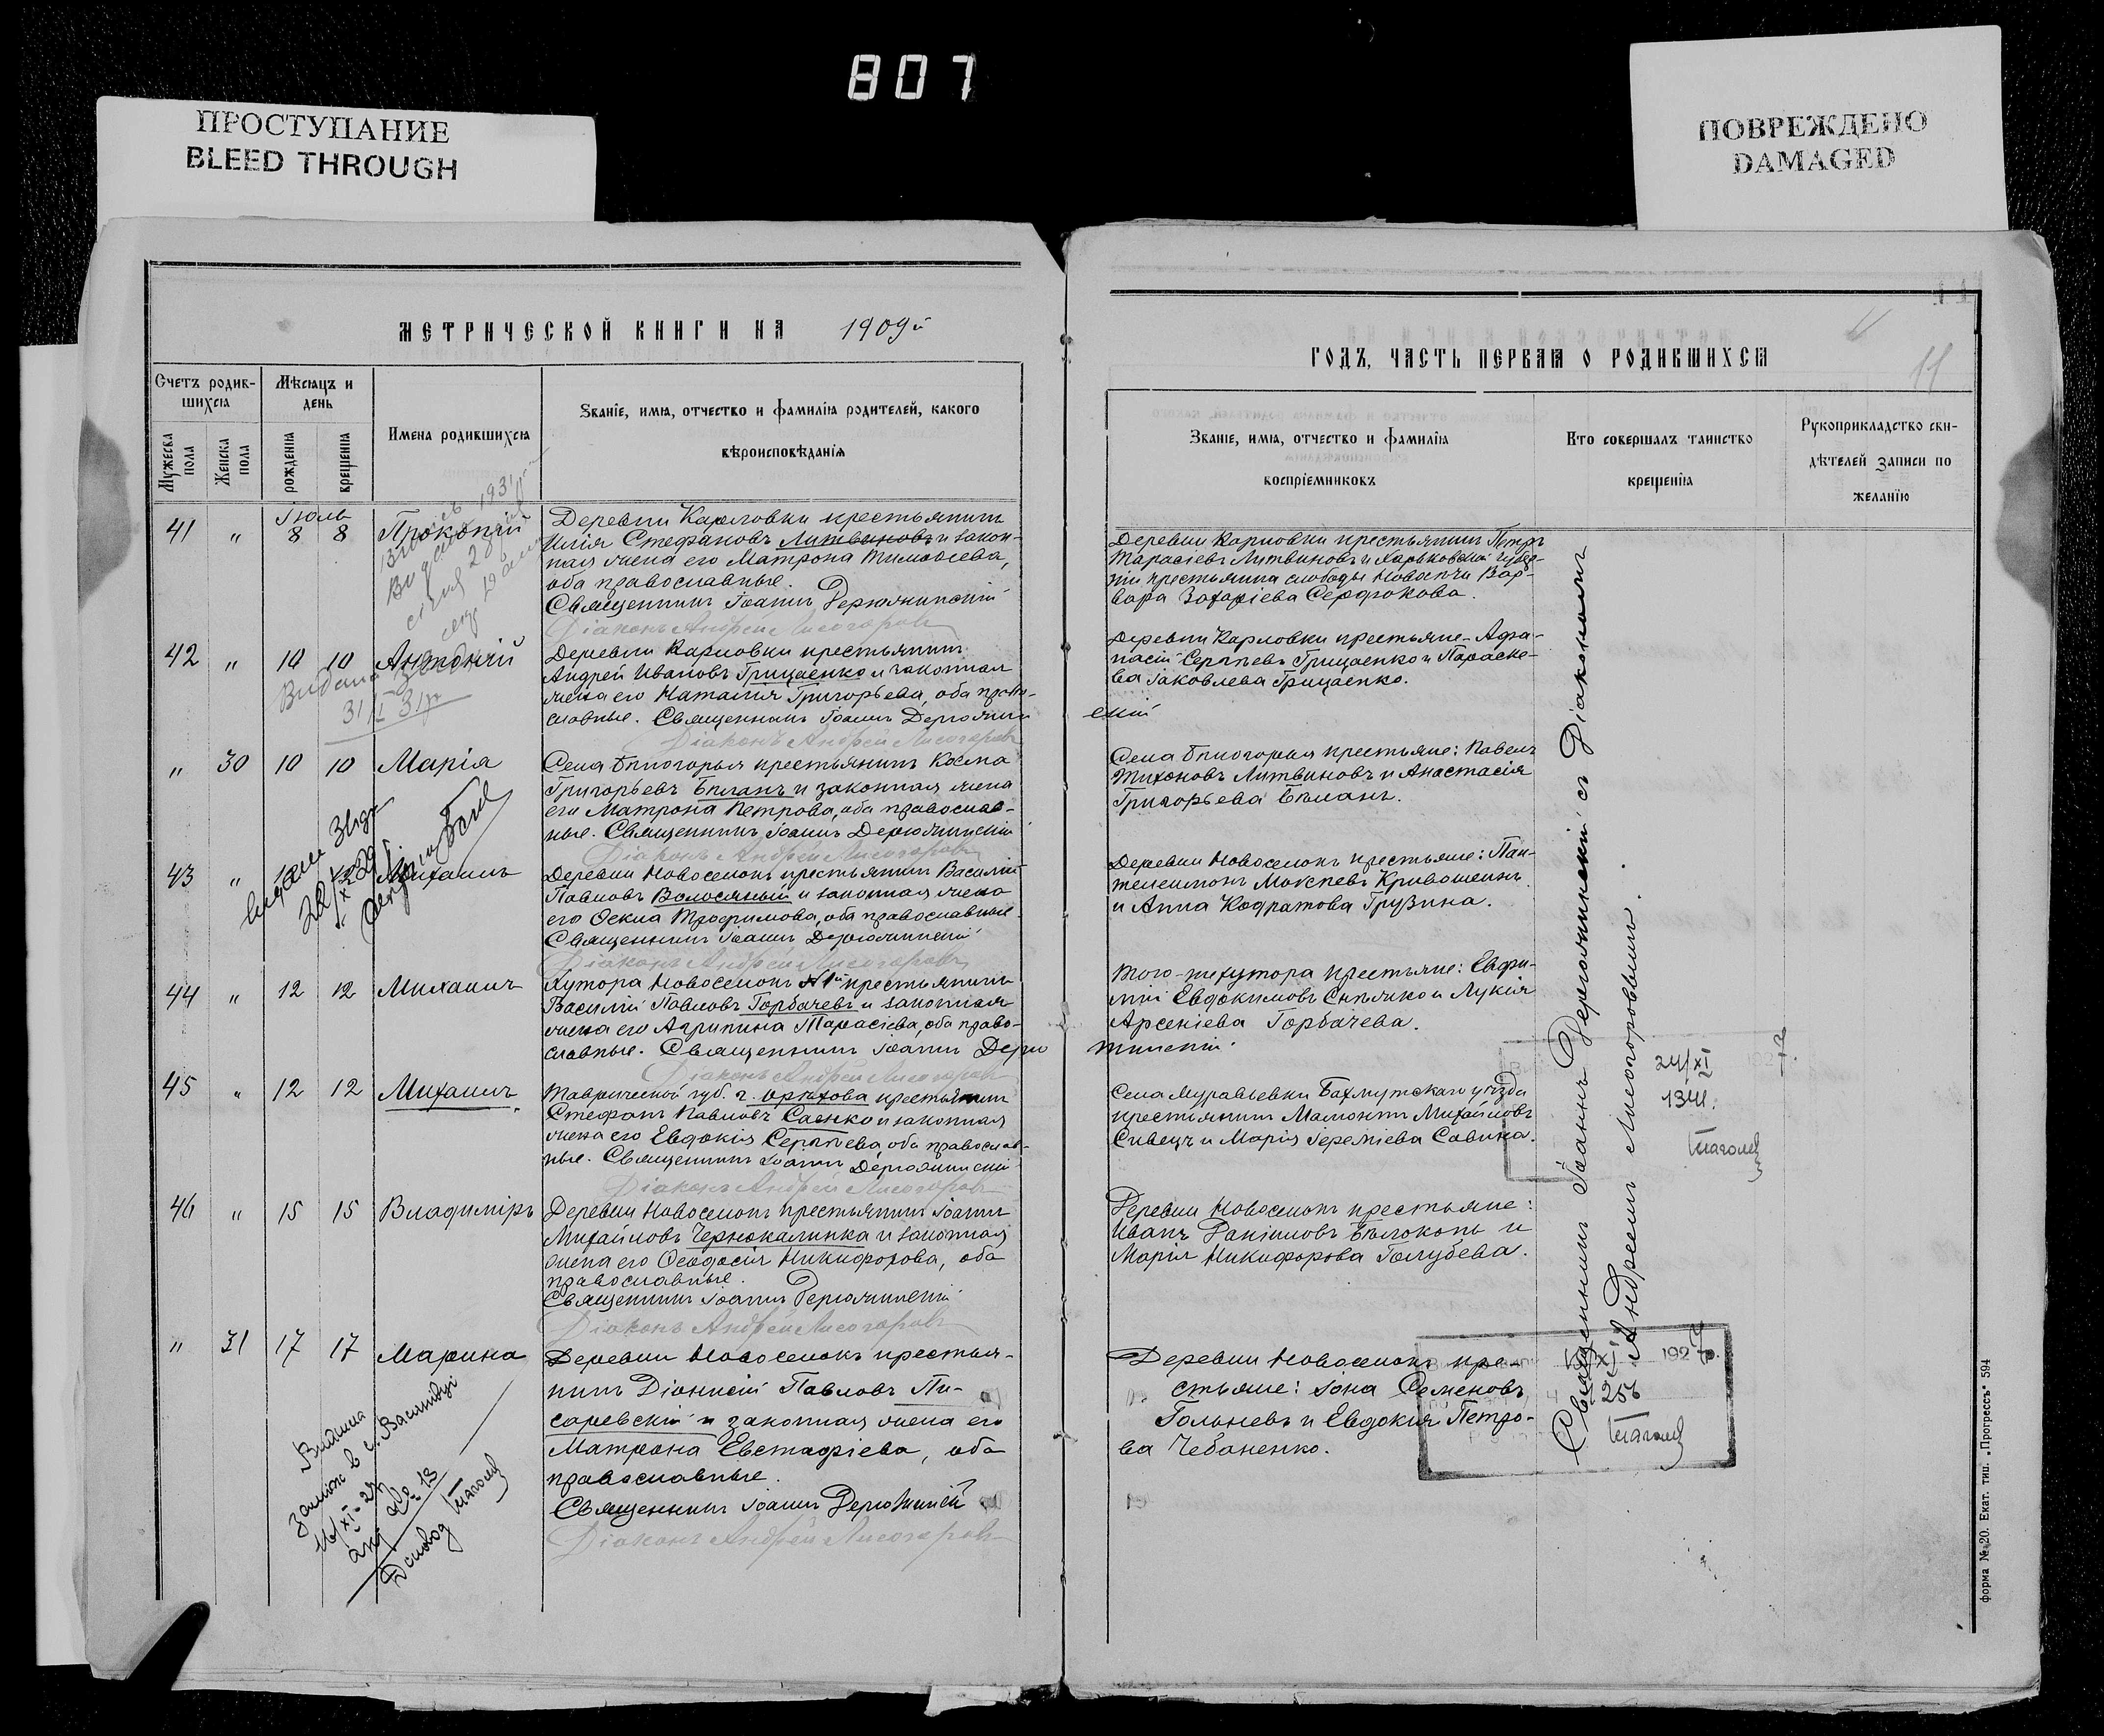 807
ПРОСТУПАНИЕ
BLEED THROUGH
ПОВРЕЖДЕНО
DAMAGED
МЕТРИЧЕСКОЙ КНИГИ НА 1909й
Счетъ родив-
шихся
Мѣсяцъ и
день
Мужеска
пола
Женска
пола
рожденія
крещенія
Имена родившихся
Званіе, имя, отчество и фамилія родителей, какого
вѣроисповѣданія
Іюль
41 " 8 8 Прокопій
Деревни Карловки крестьянинъ
Илія Стефановъ Литвиновъ и закон-
ная жена его Матрона Тимоѳеева,
оба православные.
Священникъ Іоаннъ Держинскій
Діаконъ Андрей Лисогоровъ
42 " 10 10 Антоній
Видана
31 р
Деревни Карловки крестьянинъ
Андрей Ивановъ Грицаенко и законная
жена его Наталія Григорьева, оба право-
славные. Священникъ Іоаннъ
Діаконъ Андрей Лисогоровъ
" 30 10 10 Марія
Села Бѣлогорья крестьянинъ Косма
Григорьевъ Бѣланъ и законная жена
его Матрона Петрова, оба православ-
ные. Священникъ Іоаннъ
Діаконъ Андрей Лисогоровъ
43 " 12 Михаилъ
Деревни Новоселокъ крестьянинъ Василій
Павловъ Волосяный и законная жена
его Ѳекла Трофимова, оба православные.
Священникъ Іоаннъ
Діаконъ Андрей Лисогоровъ
44 " 12 12 Михаилъ
Хутора Новоселокъ №1й крестьянинъ
Василій Павловъ Горбачевъ и законная
жена его Агрипина Тарасіева, оба право-
славные. Священникъ Іоаннъ
Діаконъ Андрей Лисогоровъ
45 " 12 12 Михаилъ
Таврической губ. г. Орѣхова крестьянинъ
Стефанъ Павловъ Саенко и законная
жена его Евдокія Сергѣева, оба православ-
ные. Священникъ Іоаннъ
Діаконъ Андрей Лисогоровъ
46 " 15 15 Владиміръ
Деревни Новоселокъ крестьянинъ Іоаннъ
Михайловъ Чернокалинка и законная
жена его Ѳеодосія Никифорова, оба
православные.
Священникъ Іоаннъ
Діаконъ Андрей Лисогоровъ
" 31 17 17 Марина
Деревни Новоселокъ крестья-
нинъ Діонисій Павловъ Пи-
саревскій и законная жена его
Матрона Евстафіева, оба
православные.
Священникъ Іоаннъ
Діаконъ Андрей Лисогоровъ
ГОДЪ, ЧАСТЬ ПЕРВАЯ О РОДИВШИХСЯ
11
Званіе, имя, отчество и фамилія
воспріемниковъ
Кто совершалъ таинство
крещенія
Рукоприкладство сви-
дѣтелей записи по
желанію
Деревни Карловки крестьянинъ Петръ
Тарасіевъ Литвиновъ и Харьковской губер-
ніи крестьянка слободы Вар-
вара Захаріева Сердюкова.
Деревни Карловки крестьяне: Афа-
насій Сергѣевъ Грицаенко и Параске-
ва Іаковлева Грицаенко.
Села Бѣлогорья крестьяне: Павелъ
Тихоновъ Литвиновъ и Анастасія
Григорьева Бѣланъ.
Деревни Новоселокъ крестьяне: Пан-
телеимонъ Кривошеинъ
и Анна Кодратова Грузина.
Того-же хутора крестьяне: Евфи-
мій Евдокимовъ и Лукія
Арсеніева Горбачева.
Села Муравьевки Бахмутскаго уѣзда
крестьянинъ Мамонтъ Михайловъ
Сивецъ и Марія Іереміева Савина.
Деревни Новоселокъ крестьяне:
Иванъ Даніиловъ Бѣлоконь и
Марія Никифорова Голубева.
Деревни Новоселокъ кре-
стьяне: Іона Семеновъ
и Евдокія Петро-
ва Чебаненко.
Священникъ Іоаннъ съ Діакономъ
Андреемъ Лисогоровымъ.
24/XI 1927р.
1341.
1927р.
256
форма № 20. Екат. тип. „Прогрессъ" 594